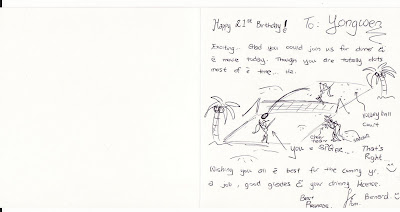 Happy 21st Birthday! To: Yongwen
Exciting... Glad you could join us for dinner &
è movie today. Though you are totally slots
most of è time... Ha.
Volley Ball
Court
Other
Team
others
You + SPG pple... That's
Right
Wishing you all è best for the coming yr.
a job, good grades & your driving license.
Best
Regards,
Bernard